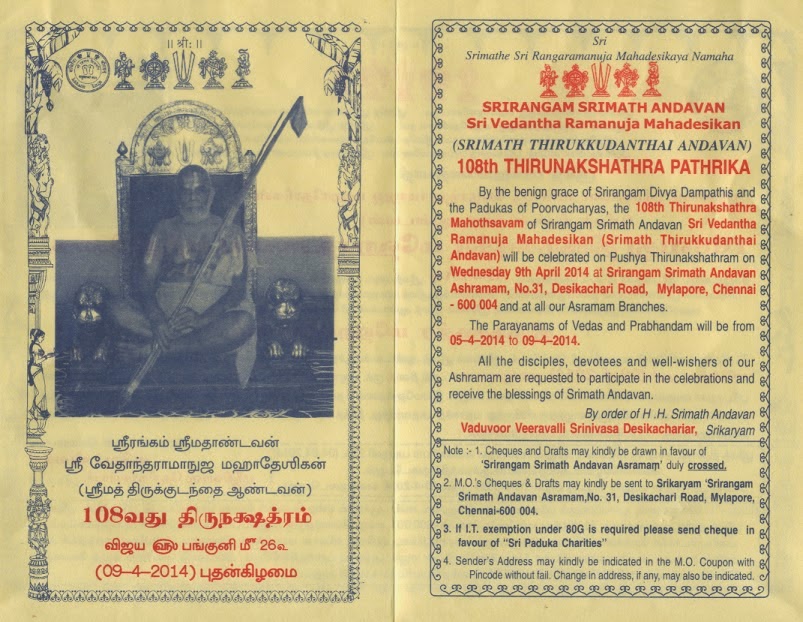 ॥ श्रीः ॥
ஸ்ரீரங்கம் ஸ்ரீமதாண்டவன்
ஸ்ரீ வேதாந்தராமாநுஜ மஹாதேஶிகன்
(ஸ்ரீமத் திருக்குடந்தை ஆண்டவன்)
108வது திருநக்ஷத்ரம்
விஜய ௵ பங்குனி மீ 26௳
(09-4-2014) புதன்கிழமை
Sri
Srimathe Sri Rangaramanuja Mahadesikaya Namaha
SRIRANGAM SRIMATH ANDAVAN
Sri Vedantha Ramanuja Mahadesikan
(SRIMATH THIRUKKUDANTHAI ANDAVAN)
108th THIRUNAKSHATHRA PATHRIKA
By the benign grace of Srirangam Divya Dampathis and
the Padukas of Poorvacharyas, the 108th Thirunakshathra
Mahothsavam of Srirangam Srimath Andavan Sri Vedantha
Ramanuja Mahadesikan (Srimath Thirukkudanthai
Andavan) will be celebrated on Pushya Thirunakshathram on
Wednesday 9th April 2014 at Srirangam Srimath Andavan
Ashramam, No.31, Desikachari Road, Mylapore, Chennai
- 600 004 and at all our Asramam Branches.
The Parayanams of Vedas and Prabhandam will be from
05-4-2014 to 09-4-2014.
All the disciples, devotees and well-wishers of our
Ashramam are requested to participate in the celebrations and
receive the blessings of Srimath Andavan.
By order of H .H. Srimath Andavan
Vaduvoor Veeravalli Srinivasa Desikachariar, Srikaryam
Note :- 1. Cheques and Drafts may kindly be drawn in favour of
'Srirangam Srimath Andavan Asramam' duly crossed.
2. M.O.'s Cheques & Drafts may kindly be sent to Srikaryam 'Srirangam
Srimath Andavan Asramam,No. 31, Desikachari Road, Mylapore,
Chennai-600 004.
3. If I.T. exemption under 80G is required please send cheque in
favour of "Sri Paduka Charities"
4. Sender's Address may kindly be indicated in the M.O. Coupon with
Pincode without fail. Change in address, if any, may also be indicated.